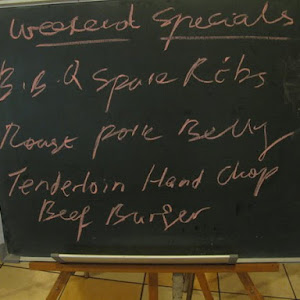 Weekend Specials
B.B.Q Spare Ribs
Roast Pork Belly
Tenderloin Hand Chop
Beef Burger